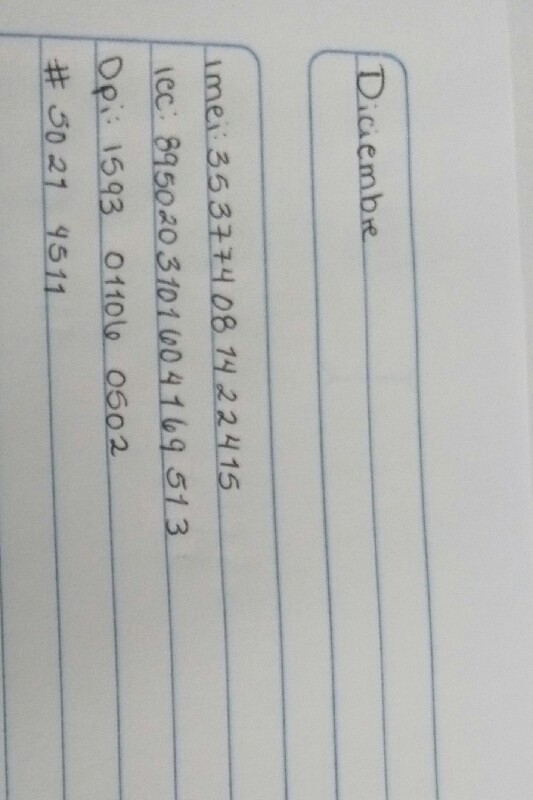 Diciembre
imei: 353774081422415
icc: 8950203101604169513
Dpi: 1593 01106 0502
# 5021 4511